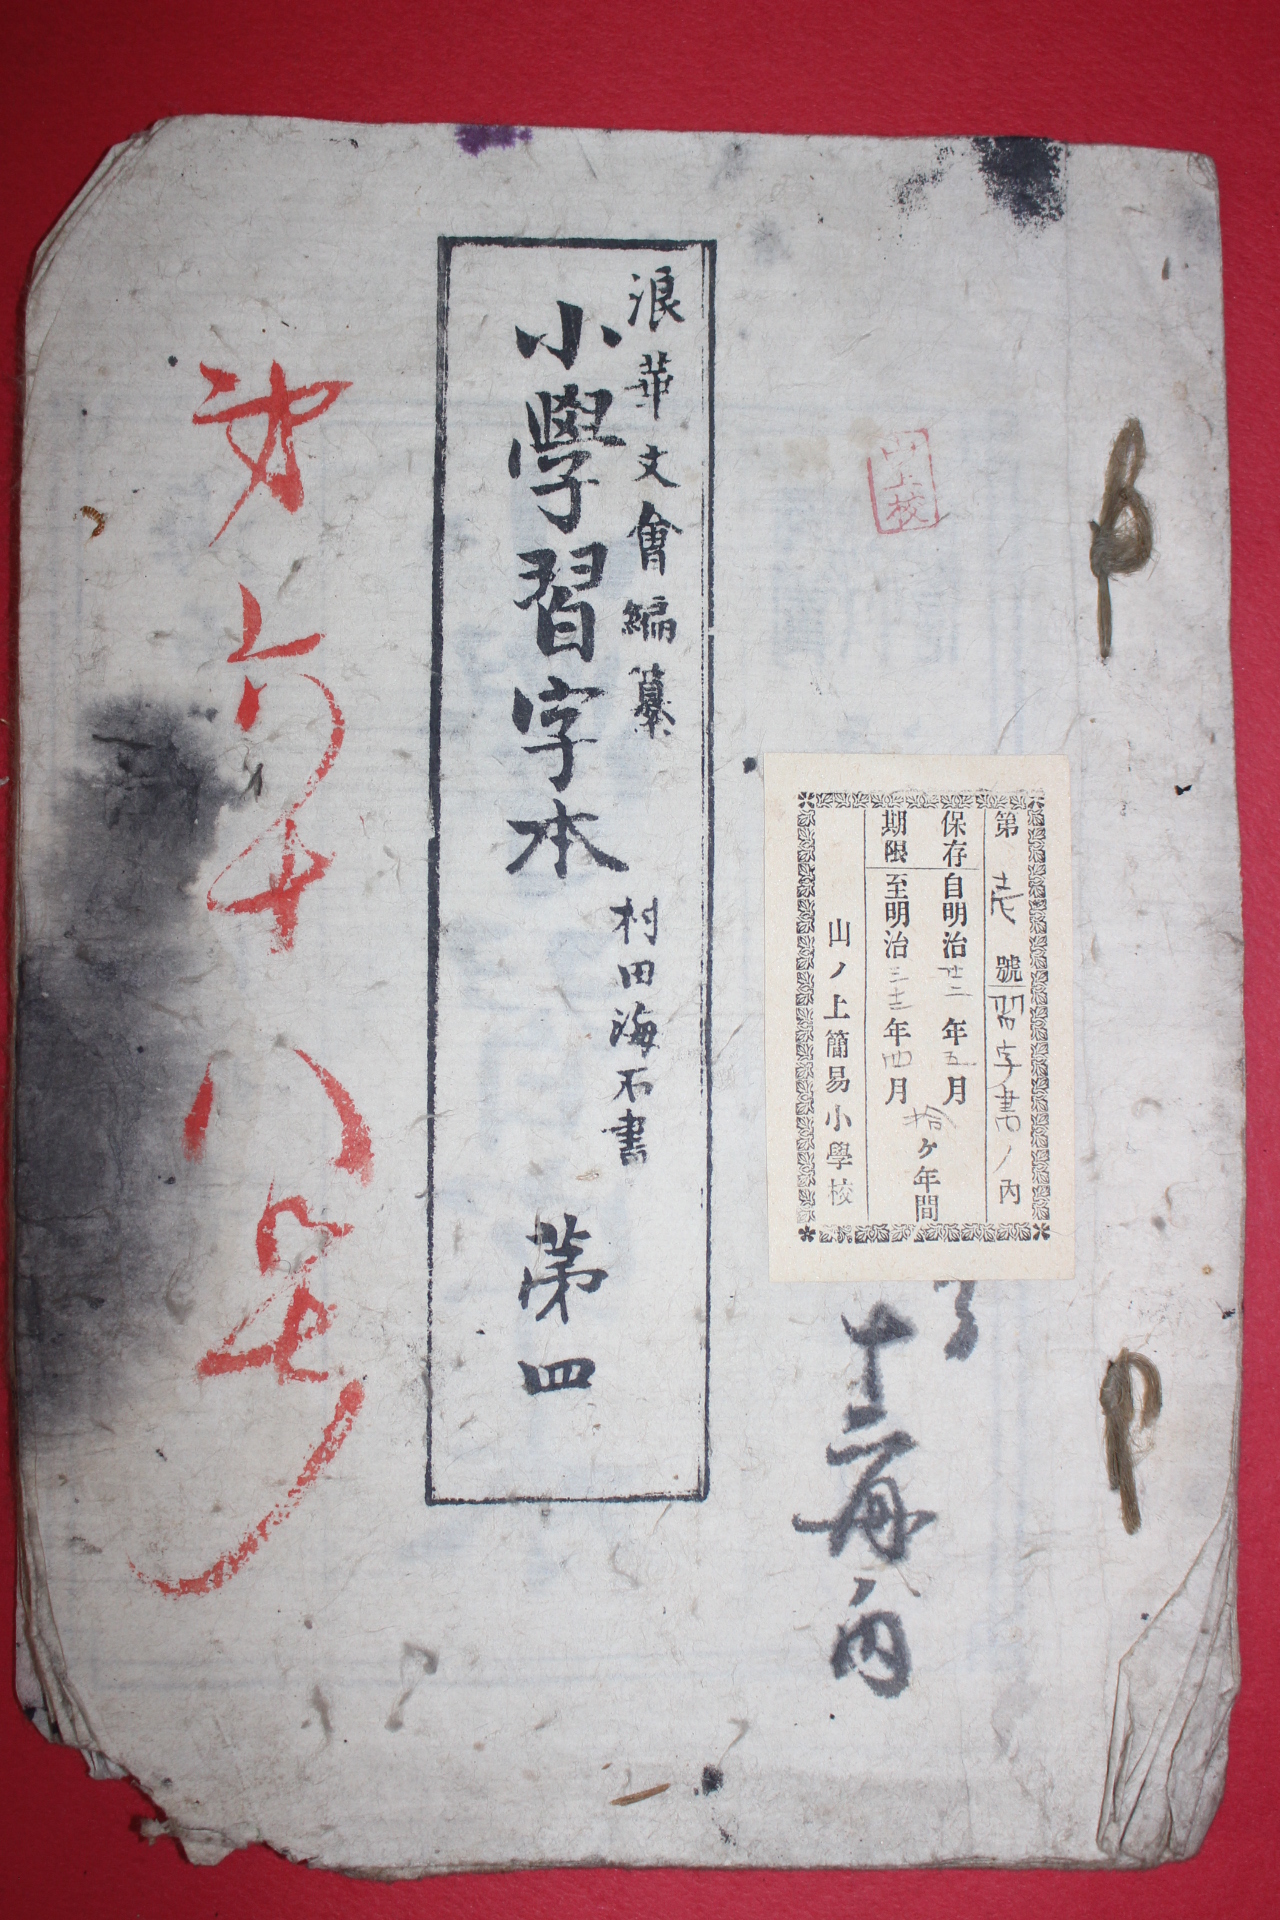 山上校
第壱號習字書ノ内
保存自明治廿二年五月
期限至明治三十二年四月
拾ケ年間
山ノ上簡易小學校
十二册ノ内
浪華文會編纂
小學習字本
村田海石書
第四
第六十八号